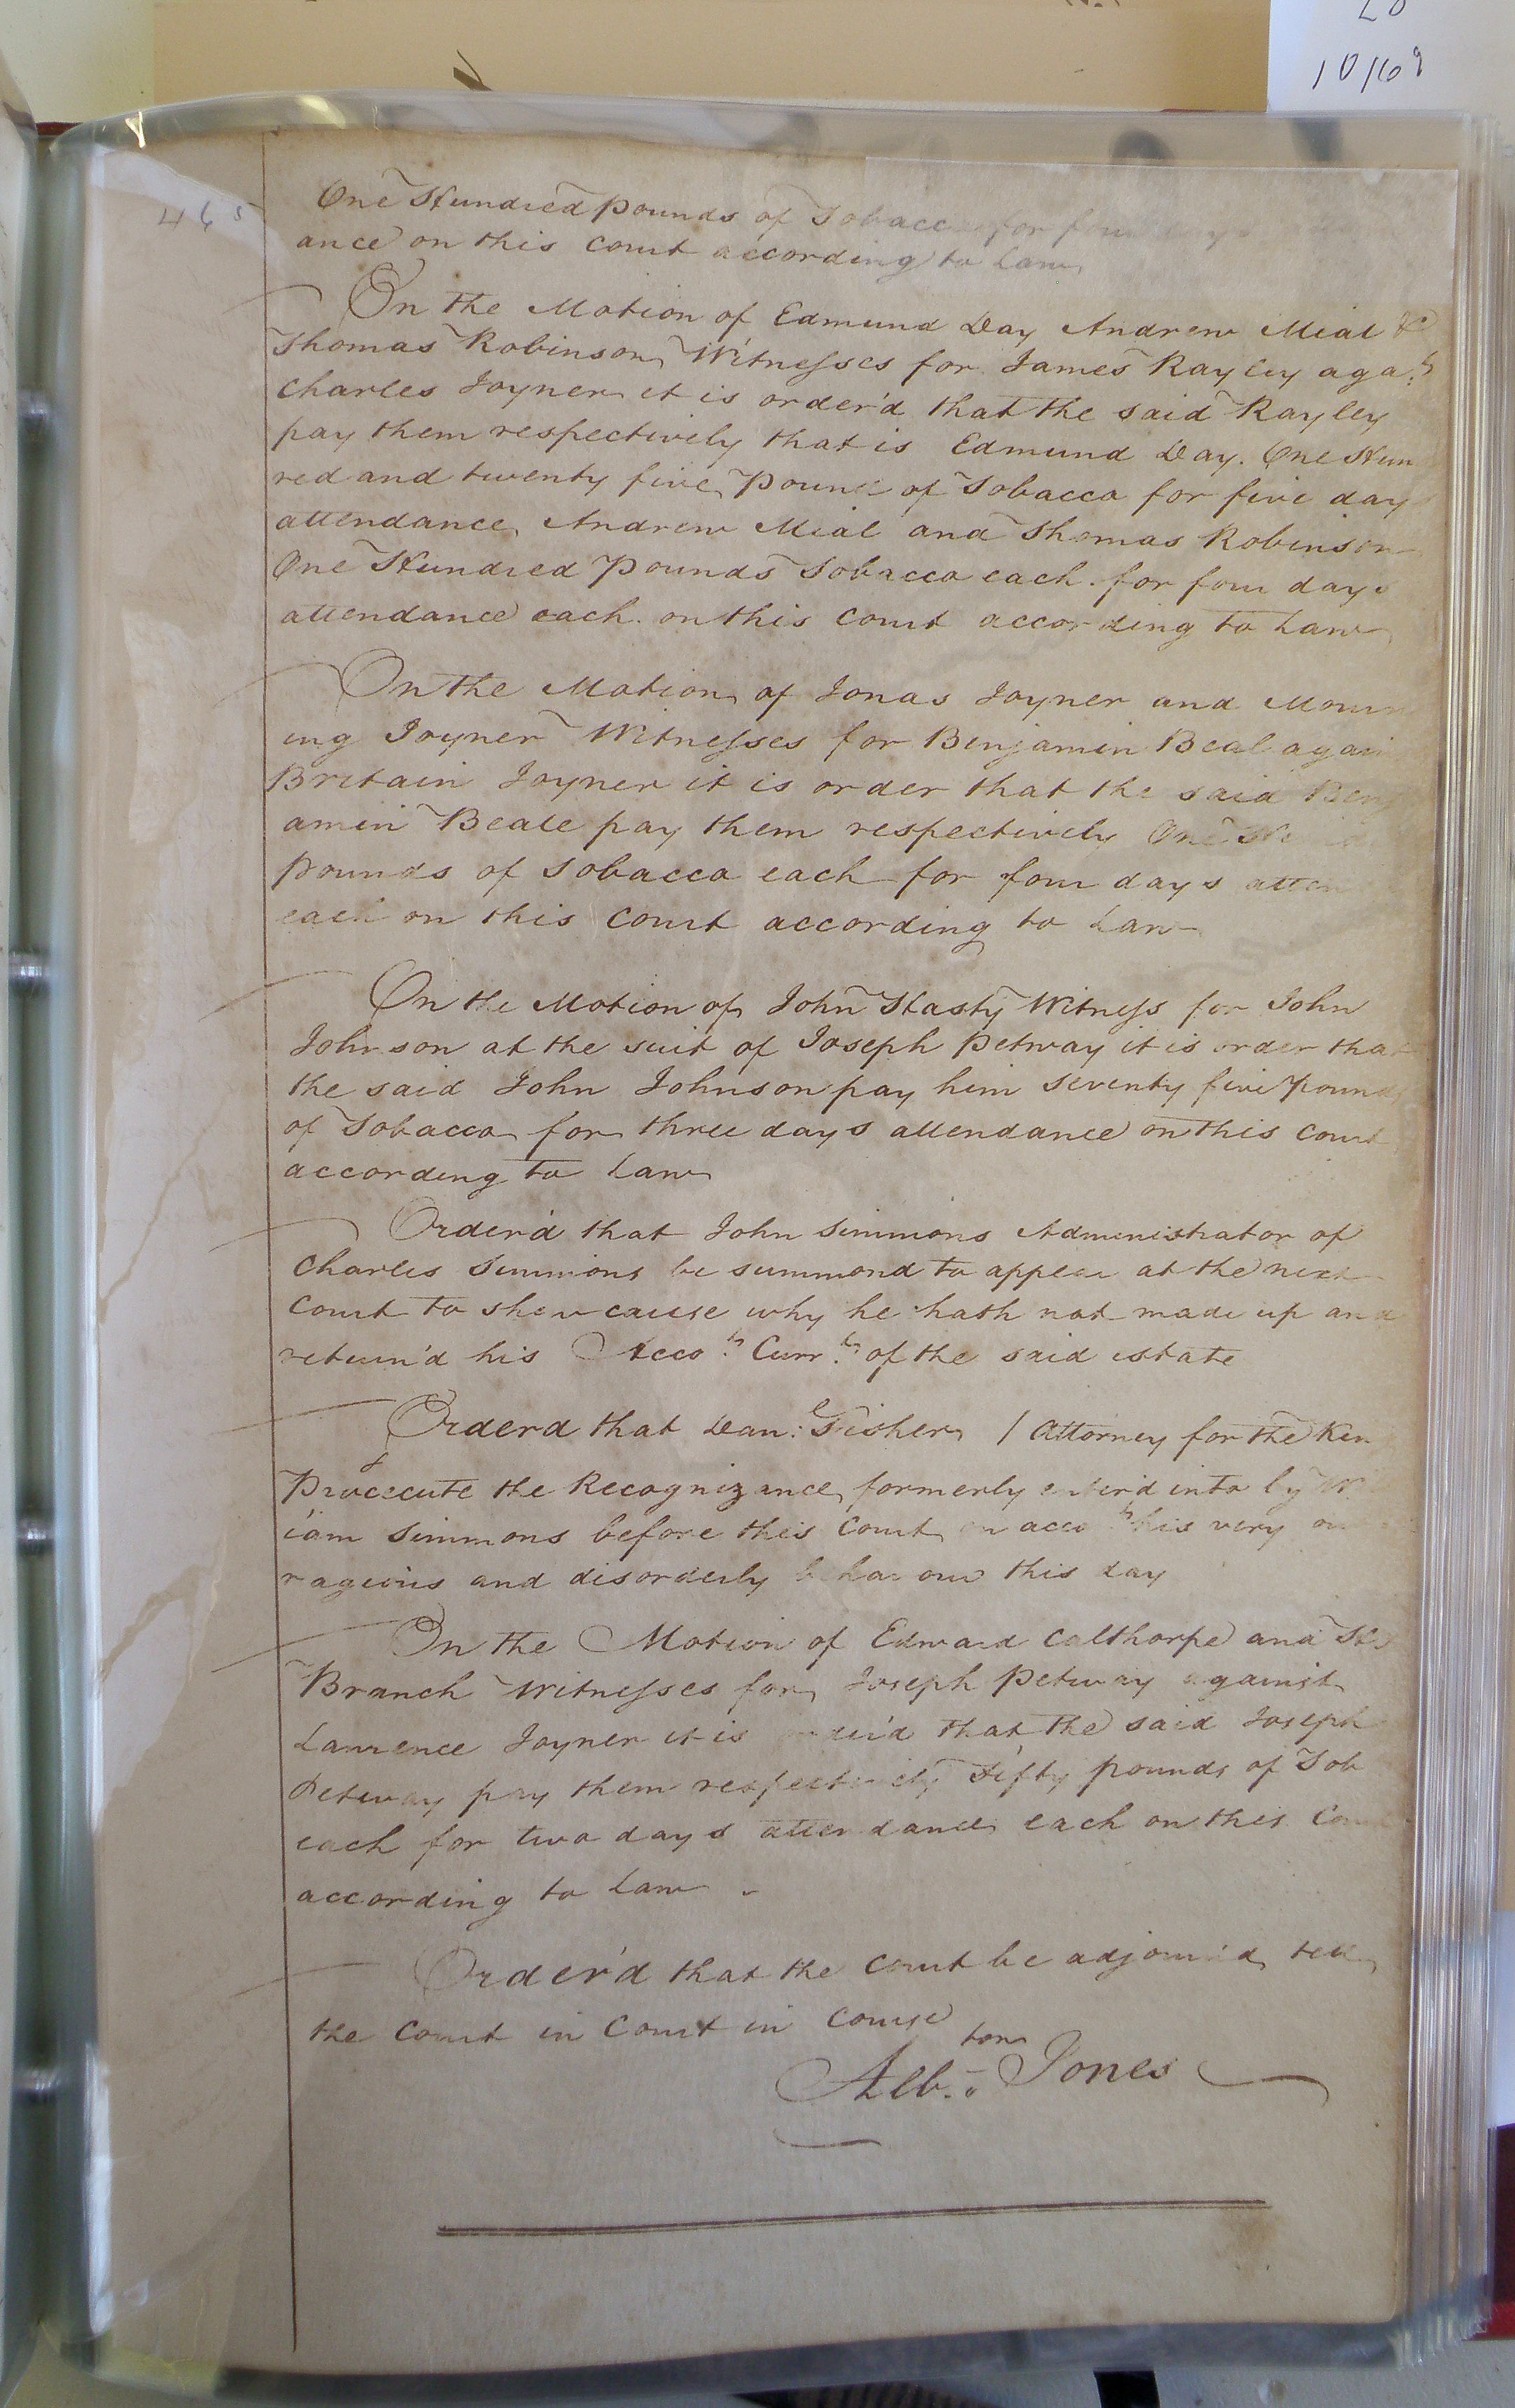 10/69
465
One Hundred pounds of Tobacco for four
ance on this Court according to Law
On the Motion of Edmund Day Andrew Mial &
Thomas Robinson Witnesses for James Rayley aga.st
Charles Joyner it is order'd that the said Rayley
pay them respectively that is Edmund Day. One Hun
red and twenty five Pound of Tobacco for five day
attendance, Andrew Mial and Thomas Robinson
One Hundred Pounds Tobacco each for four days
attendance each on this Court according to Law
On the Motion of Jonas Joyner and Mourn
ing Joyner Witnesses for Benjamin Beal again
Britain Joyner it is order that the said Benj
amin Beale pay them respectively One
pounds of Tobacco each for four days atten
each on this Court according to Law
On the Motion of John Hasty Witness for John
Johnson at the suit of Joseph Petway it is order that
the said John Johnson pay him seventy five pound
of Tobacco for three days attendance on this Court
according to Law
Order'd that John Simmons Administrator of
Charles Simmons be summond to appear at the next
Court to shew cause why he hath not made up and
return'd his Acco.ts Curr.ts of the said estate
Orderd that Dan: Fisher / Attorney for the Kin
Prosecute the Recognizance formerly enter'd into by
iam Simmons before this Court on acco his very out
ragious and disorderly behaviour this day
On the Motion of Edward Calthorpe and
Branch Witnesses for Joseph Petway against
Laurence Joyner it is order'd that the said Joseph
Petway pay them respectively Fifty pounds of Tob
each for two days attendance each on this Court
according to Law
Order'd that the Court be adjourn'd till
the Court in Court in Course
Alb.ton Jones